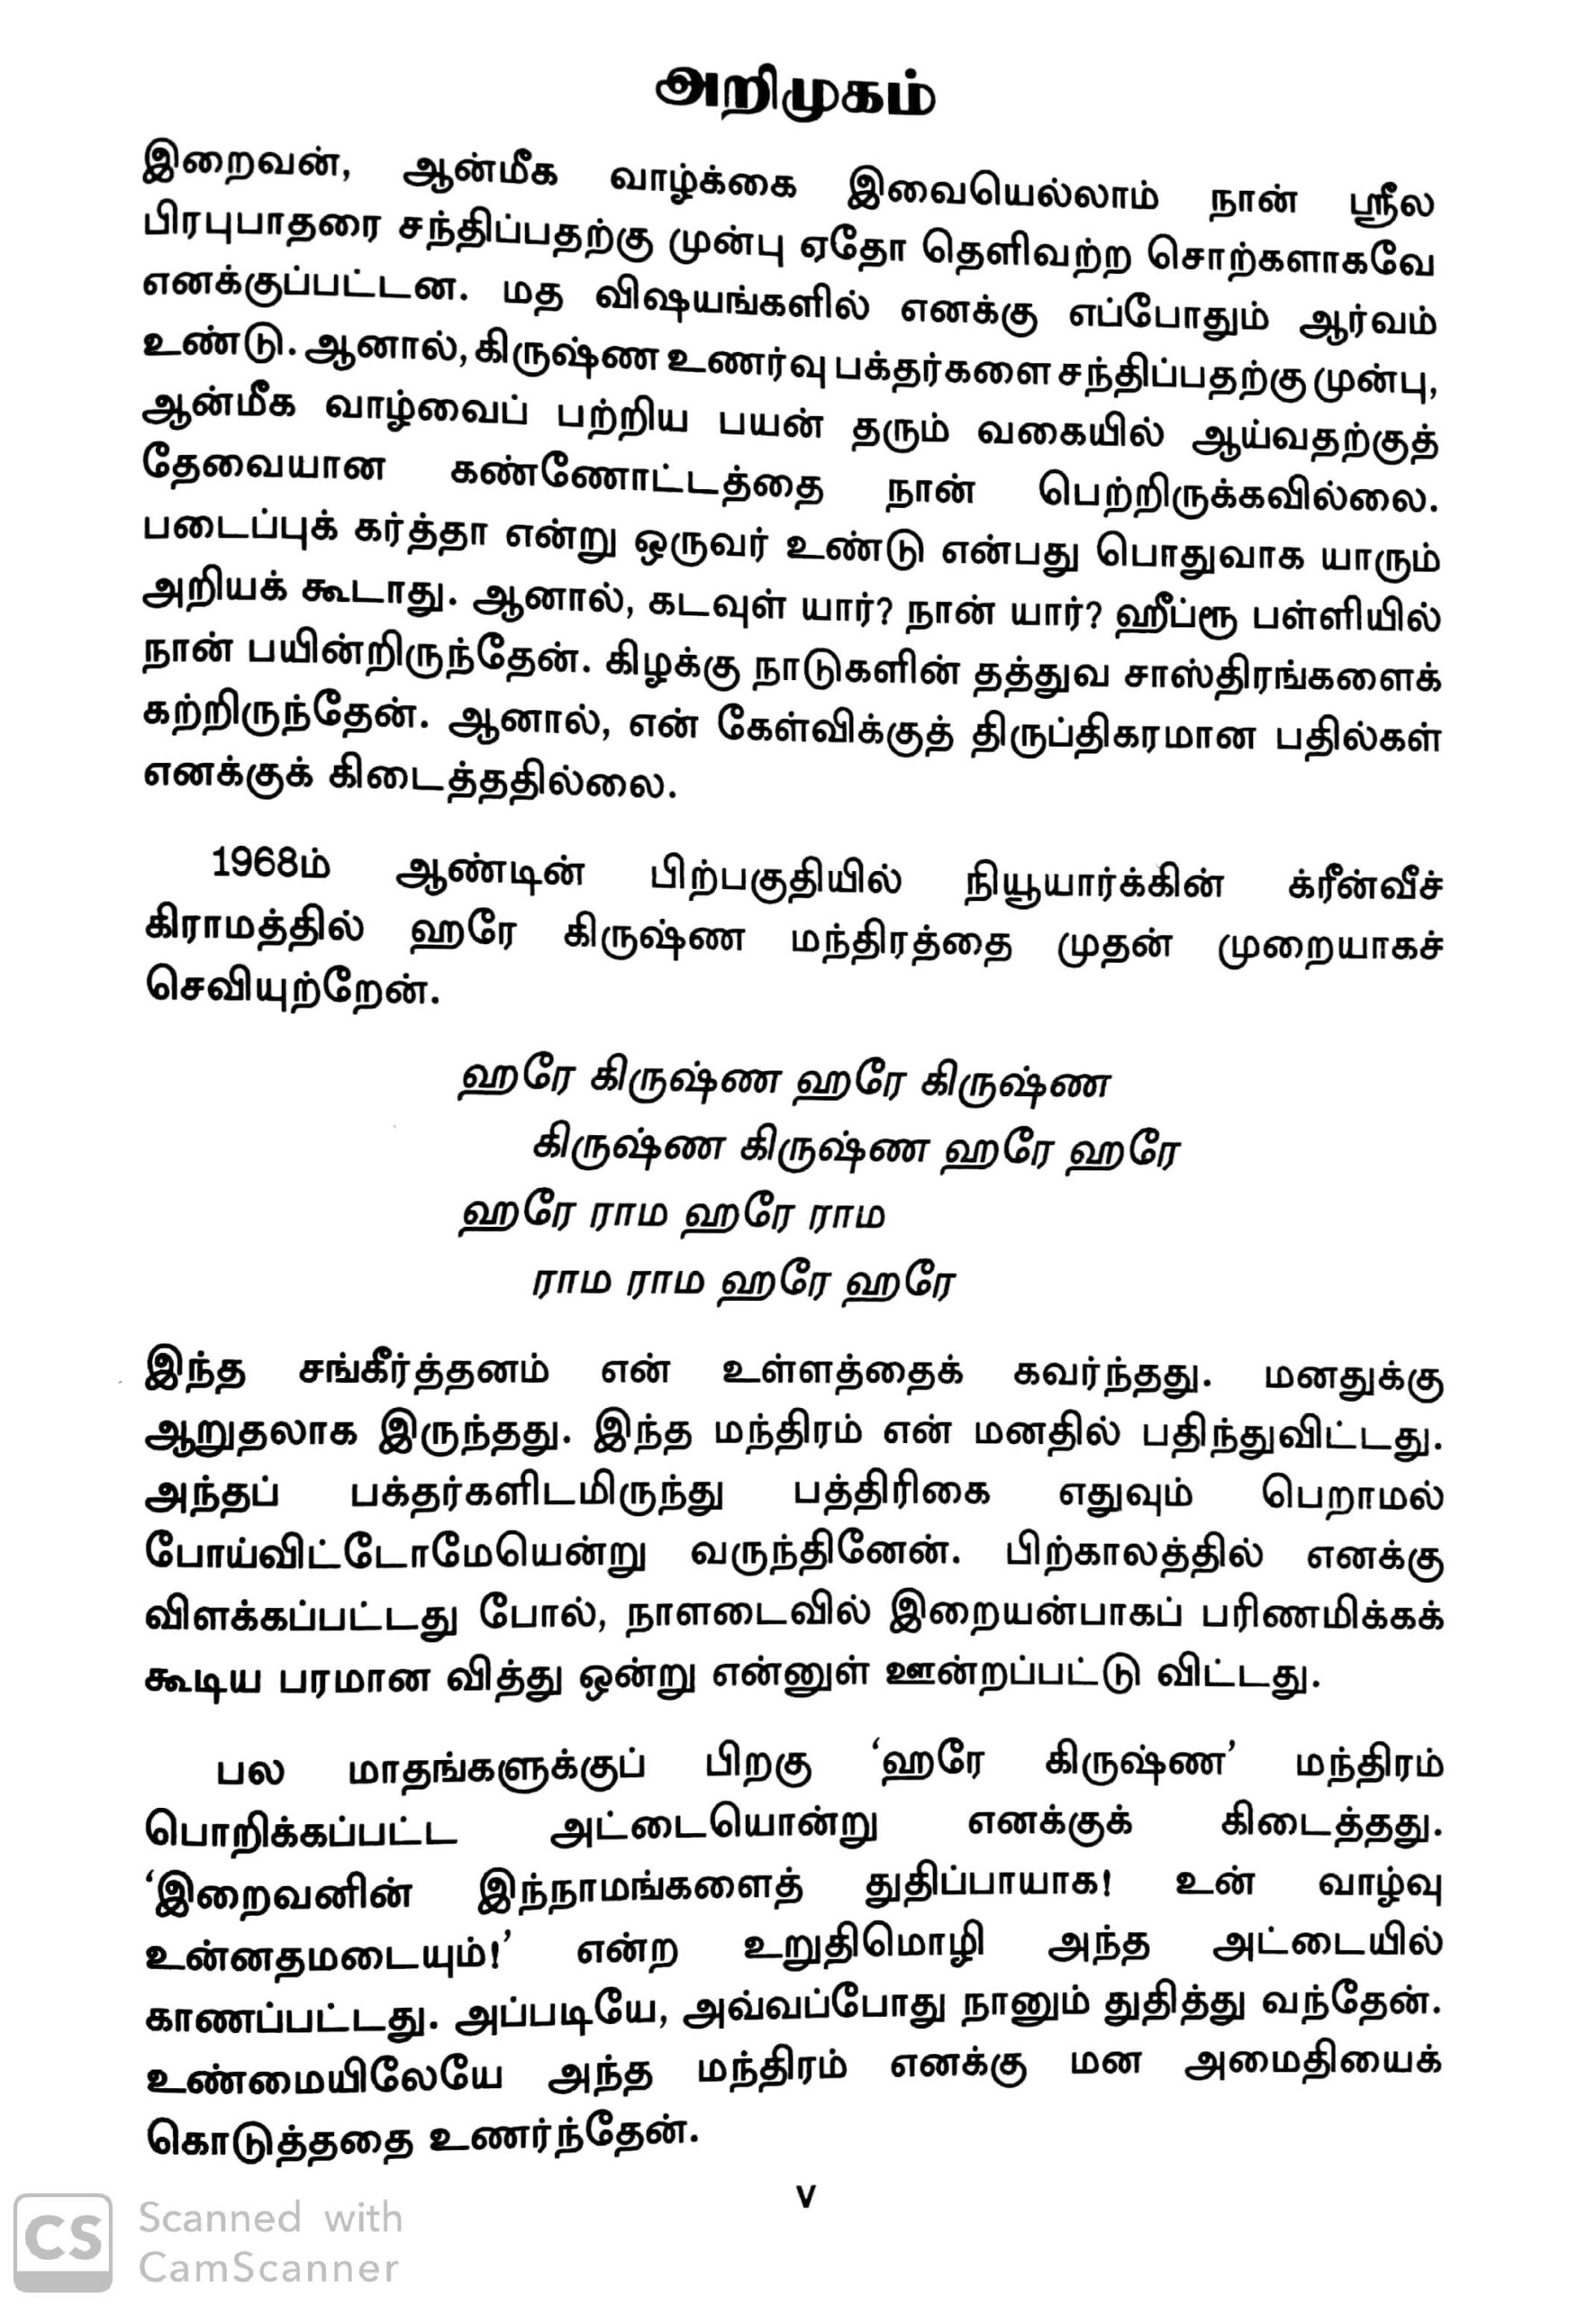 அறிமுகம்
இறைவன், ஆன்மீக வாழ்க்கை இவையெல்லாம் நான் ஸ்ரீல
பிரபுபாதரை சந்திப்பதற்கு முன்பு ஏதோ தெளிவற்ற சொற்களாகவே
எனக்குப்பட்டன. மத விஷயங்களில் எனக்கு எப்போதும் ஆர்வம்
உண்டு. ஆனால், கிருஷ்ண உணர்வு பக்தர்களை சந்திப்பதற்கு முன்பு,
ஆன்மீக வாழ்வைப் பற்றிய பயன் தரும் வகையில் ஆய்வதற்குத்
தேவையான கண்ணோட்டத்தை நான் பெற்றிருக்கவில்லை.
படைப்புக் கர்த்தா என்று ஒருவர் உண்டு என்பது பொதுவாக யாரும்
அறியக் கூடாது. ஆனால், கடவுள் யார்? நான் யார்? ஹீப்ரூ பள்ளியில்
நான் பயின்றிருந்தேன். கிழக்கு நாடுகளின் தத்துவ சாஸ்திரங்களைக்
கற்றிருந்தேன். ஆனால், என் கேள்விக்குத் திருப்திகரமான பதில்கள்
எனக்குக் கிடைத்ததில்லை.
1968ம் ஆண்டின் பிற்பகுதியில் நியூயார்க்கின் க்ரீன்வீச்
கிராமத்தில் ஹரே கிருஷ்ண மந்திரத்தை முதன் முறையாகச்
செவியுற்றேன்.
ஹரே கிருஷ்ண ஹரே கிருஷ்ண
கிருஷ்ண கிருஷ்ண ஹரே ஹரே
ஹரே ராம ஹரே ராம
ராம ராம ஹரே ஹரே
இந்த சங்கீர்த்தனம் என் உள்ளத்தைக் கவர்ந்தது. மனதுக்கு
ஆறுதலாக இருந்தது. இந்த மந்திரம் என் மனதில் பதிந்துவிட்டது.
அந்தப் பக்தர்களிடமிருந்து பத்திரிகை எதுவும் பெறாமல்
போய்விட்டோமேயென்று வருந்தினேன். பிற்காலத்தில் எனக்கு
விளக்கப்பட்டது போல், நாளடைவில் இறையன்பாகப் பரிணமிக்கக்
கூடிய பரமான வித்து ஒன்று என்னுள் ஊன்றப்பட்டு விட்டது.
பல மாதங்களுக்குப் பிறகு ‘ஹரே கிருஷ்ண’ மந்திரம்
பொறிக்கப்பட்ட அட்டையொன்று எனக்குக் கிடைத்தது.
‘இறைவனின் இந்நாமங்களைத் துதிப்பாயாக! உன் வாழ்வு
உன்னதமடையும்!’ என்ற உறுதிமொழி அந்த அட்டையில்
காணப்பட்டது. அப்படியே, அவ்வப்போது நானும் துதித்து வந்தேன்.
உண்மையிலேயே அந்த மந்திரம் எனக்கு மன அமைதியைக்
கொடுத்ததை உணர்ந்தேன்.
v
CS Scanned with
CamScanner